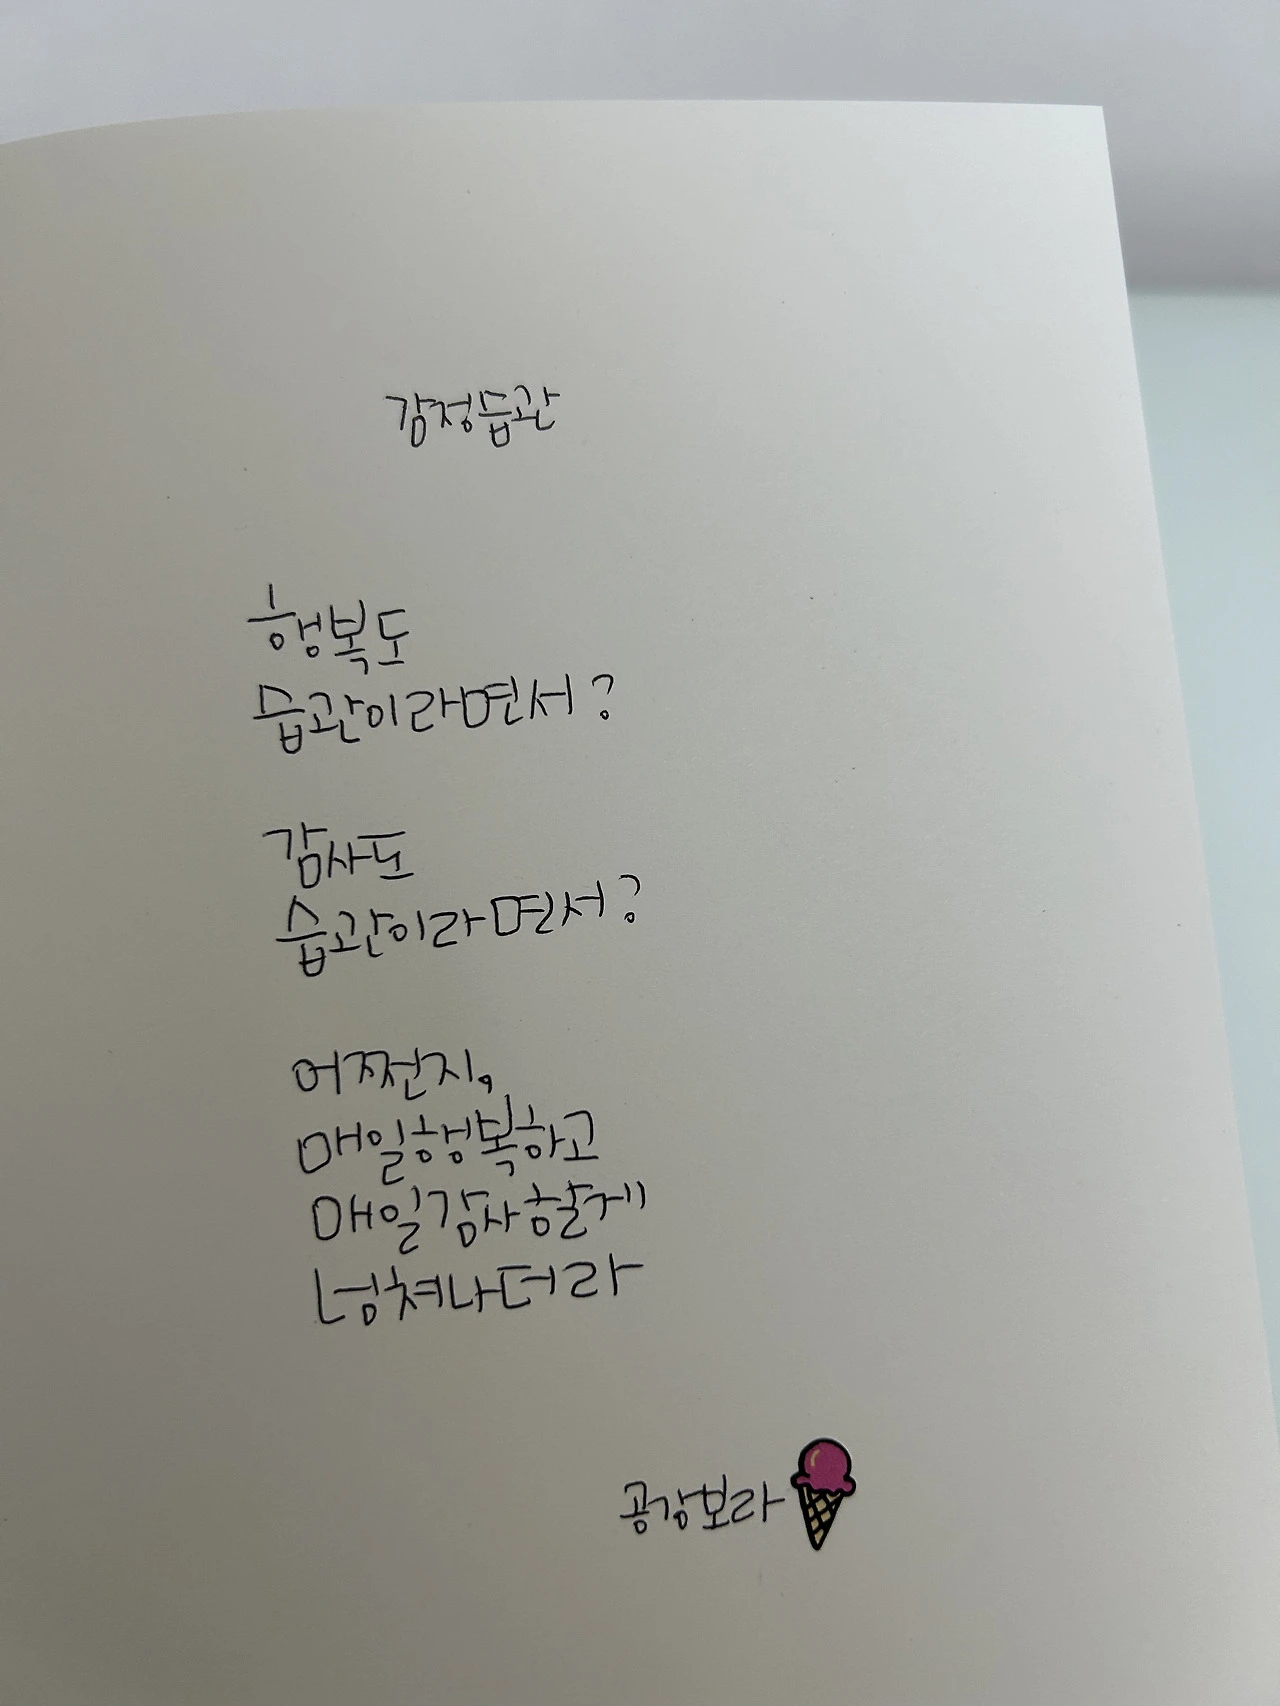 감정습관
행복도
습관이라면서?
감사도
습관이라면서?
어쩐지,
매일행복하고
매일감사할게
넘쳐나더라
공강보라